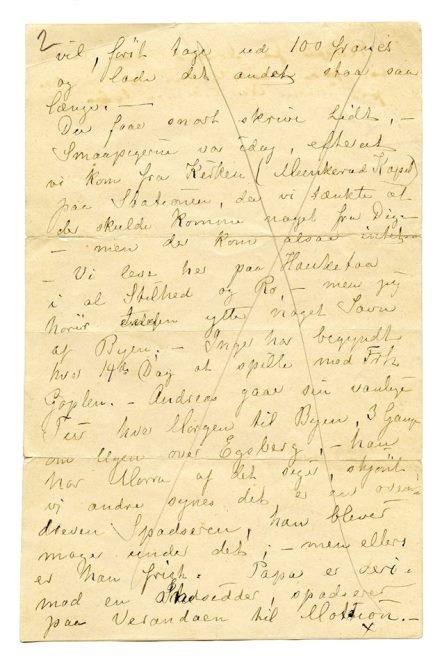 2
vil, først tage ud 100 francs
og lade det andet staa saa
længe. —
Du faar snart skrive hidt, —
Smaapigerne var idag, efterat
vi kom fra Kirken (Munkerud Kapel)
paa Stationen, da vi tænkte at
der skulde komme noget fra Dig. —
— men der kom altsaa intet. —
— Vi lever her paa Haukestaa
i al Stilhed og Ro, — men jeg
hører ikke noget Savn
af Byen. — Inger har begyndt
hver 14de Dag at spille med Frk
Goplen. — Andreas gaar sin vanlige
Tur hver Morgen til Byen, 3 Gange
om Ugen over Egsberg, — han
har Morro af det siger, skjønt
vi andre synes det er en over
dreven Spadseren, han blever
mager under det; — men ellers
er Han frisk. Papa er veri-
mod en Stadsidder, spadserer
paa Verandaen til Motion. —
x